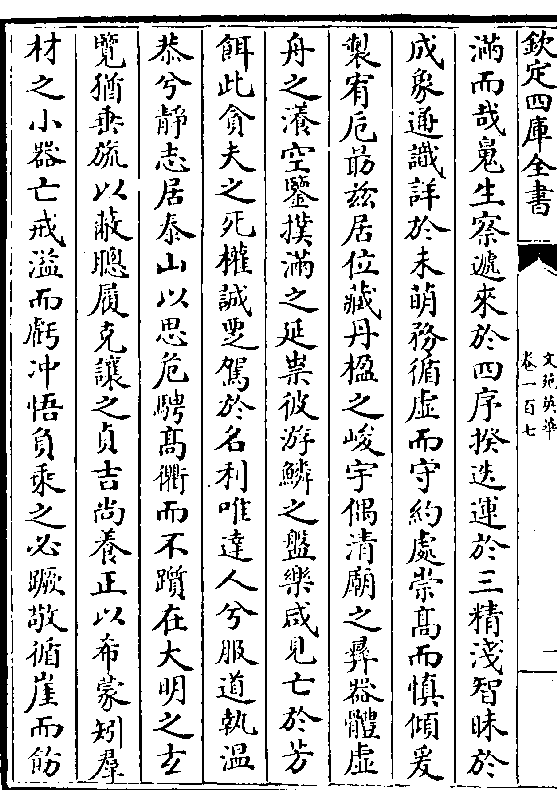 欽定四庫全書
文苑英華
卷一百七
一
滿而哉鬽生察遞來於四序揆迭運於三精淺智昧於
成象通識詳於未萌務循虛而守約處崇高而慎傾爰
製宥卮朂兹居位藏丹楹之峻宇偶清廟之彞器體虚
舟之瀁空鑒撲滿之延祟彼游鱗之盤樂咸見亡於芳
餌此貪夫之死權誠㚆駕於名利唯達人兮服道執温
恭兮静志居泰山以思危騁髙衢而不躓在大明之𤣥
覽猶垂旒以蔽聰履克讓之貞吉尚養正以希蒙矧羣
材之小器亡戒溢而虧冲悟負乘之必蹶敬循崖而飭